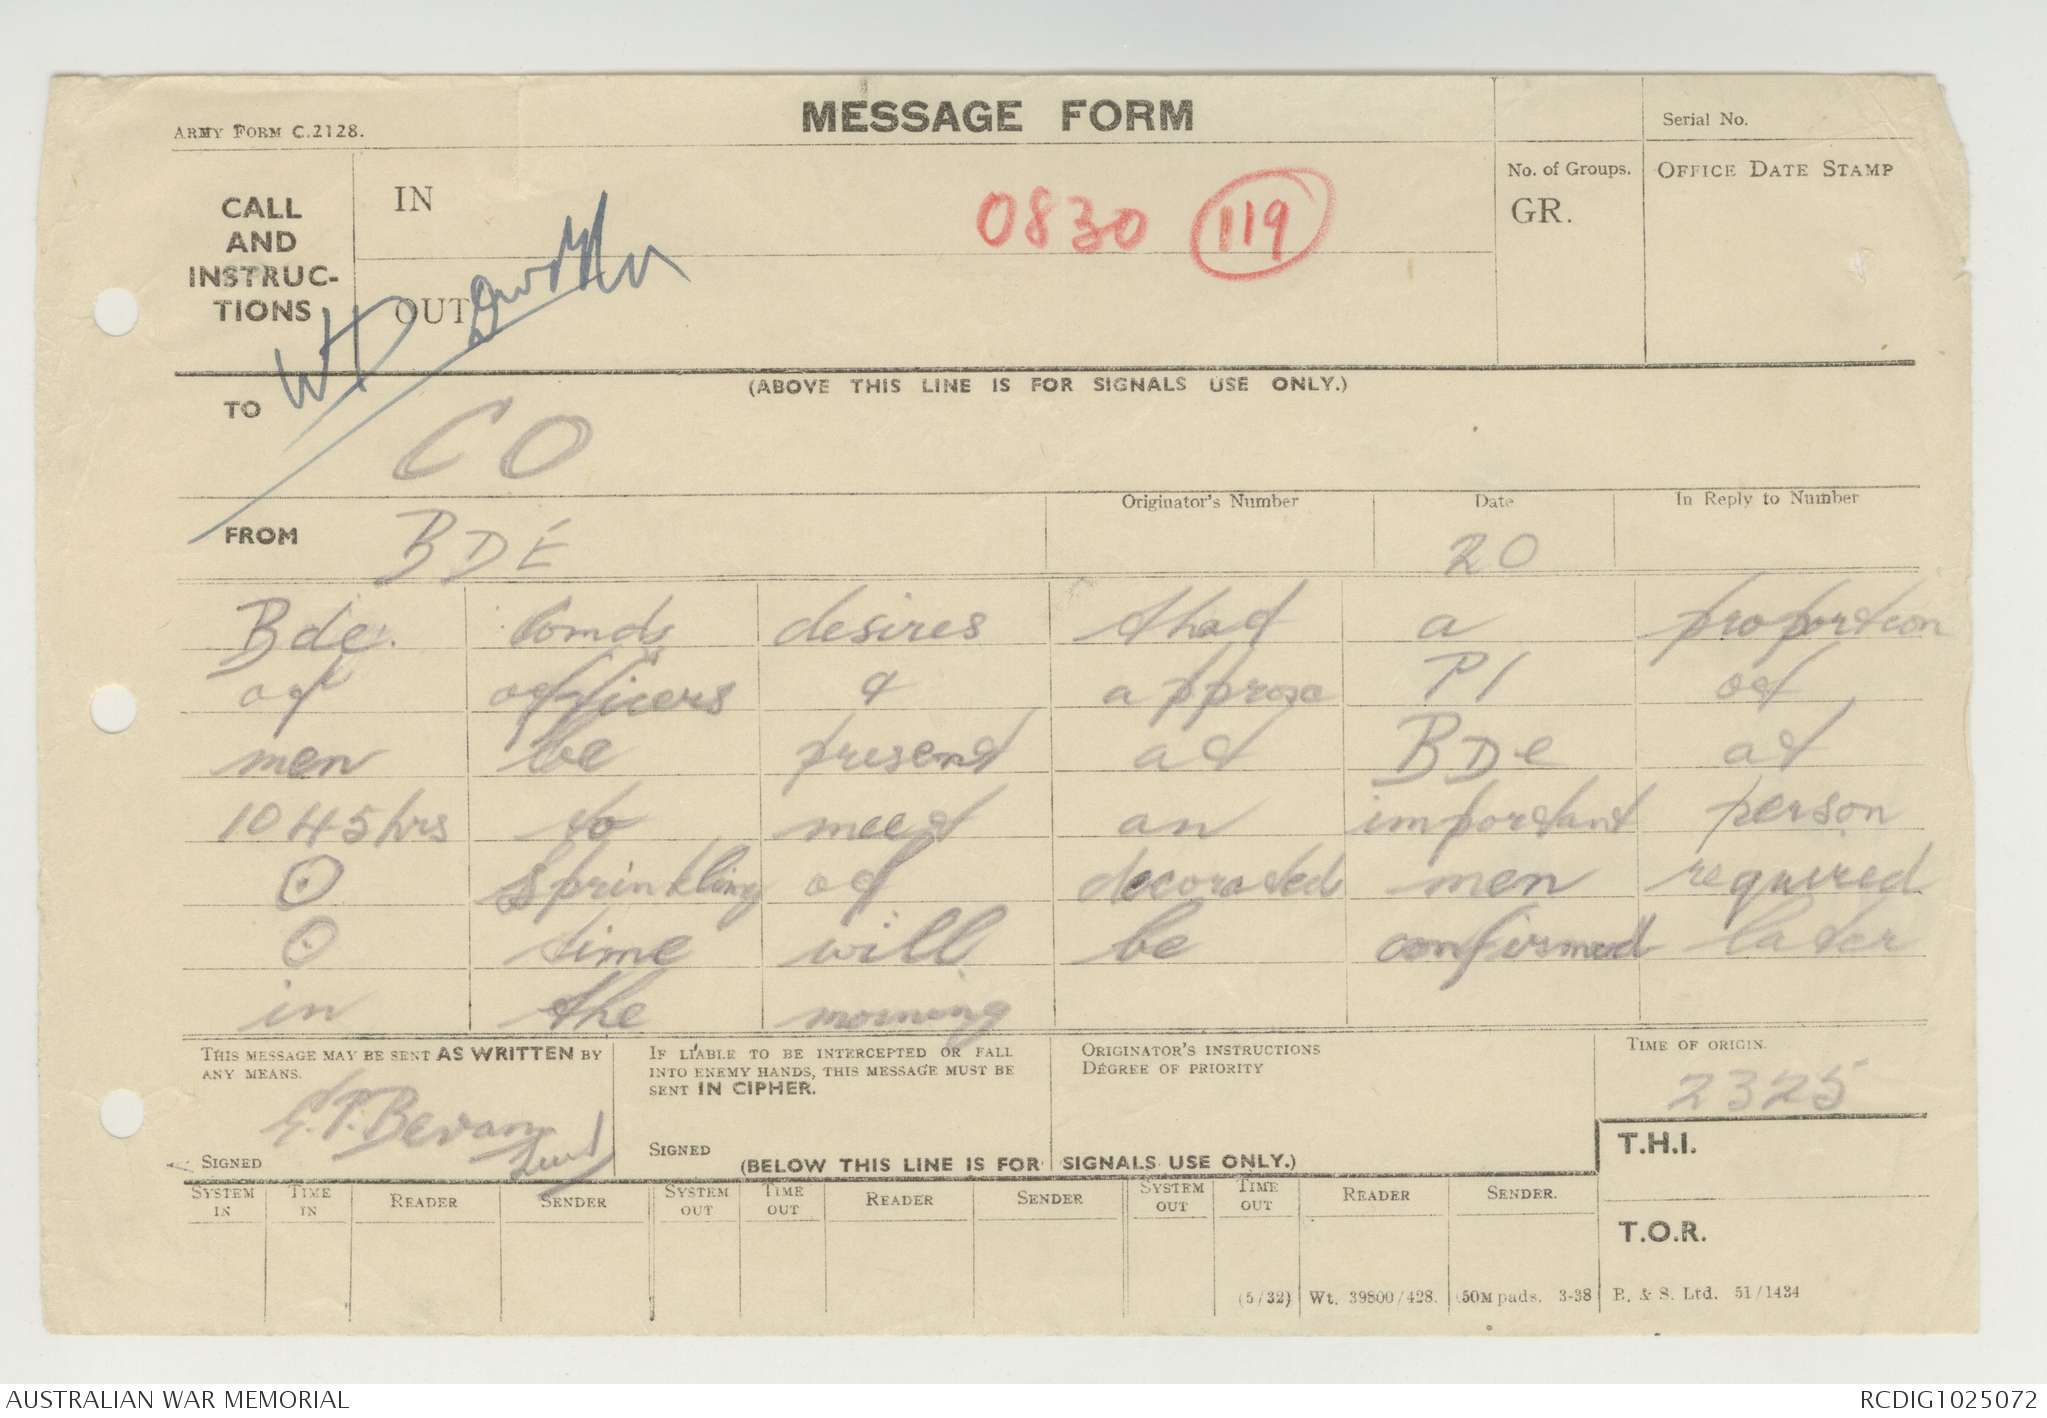 MESSAGE FORM
ARMY FORM C.2128.
Serial No.
CALL AND INSTRUC-TIONS
IN
0830 (119)
No. of Groups.
GR.
OFFICE DATE STAMP
OUT
WD
(ABOVE THIS LINE IS FOR SIGNALS USE ONLY.)
TO
CO
FROM
BDE
Originator's Number
Date
20
In Reply to Number
Bde. Comds desires that a proportion
of officers & approx Pl of
men be present at BDe at
1045hrs to meet an important person
⊙ Sprinkling of decorated men required
⊙ time will be confirmed later
in the morning
THIS MESSAGE MAY BE SENT AS WRITTEN BY
ANY MEANS.
E.P. Bevan
Lieut
SIGNED
IF LIABLE TO BE INTERCEPTED OR FALL
INTO ENEMY HANDS, THIS MESSAGE MUST BE
SENT IN CIPHER.
SIGNED
ORIGINATOR'S INSTRUCTIONS
DEGREE OF PRIORITY
TIME OF ORIGIN.
2325
T.H.I.
(BELOW THIS LINE IS FOR SIGNALS USE ONLY.)
SYSTEM IN TIME IN READER SENDER SYSTEM OUT TIME OUT READER SENDER SYSTEM OUT TIME OUT READER SENDER.
T.O.R.
(5/32) Wt. 39800/428. (50M pads. 3-38 B. & S. Ltd. 51/1434
AUSTRALIAN WAR MEMORIAL
RCDIG1025072